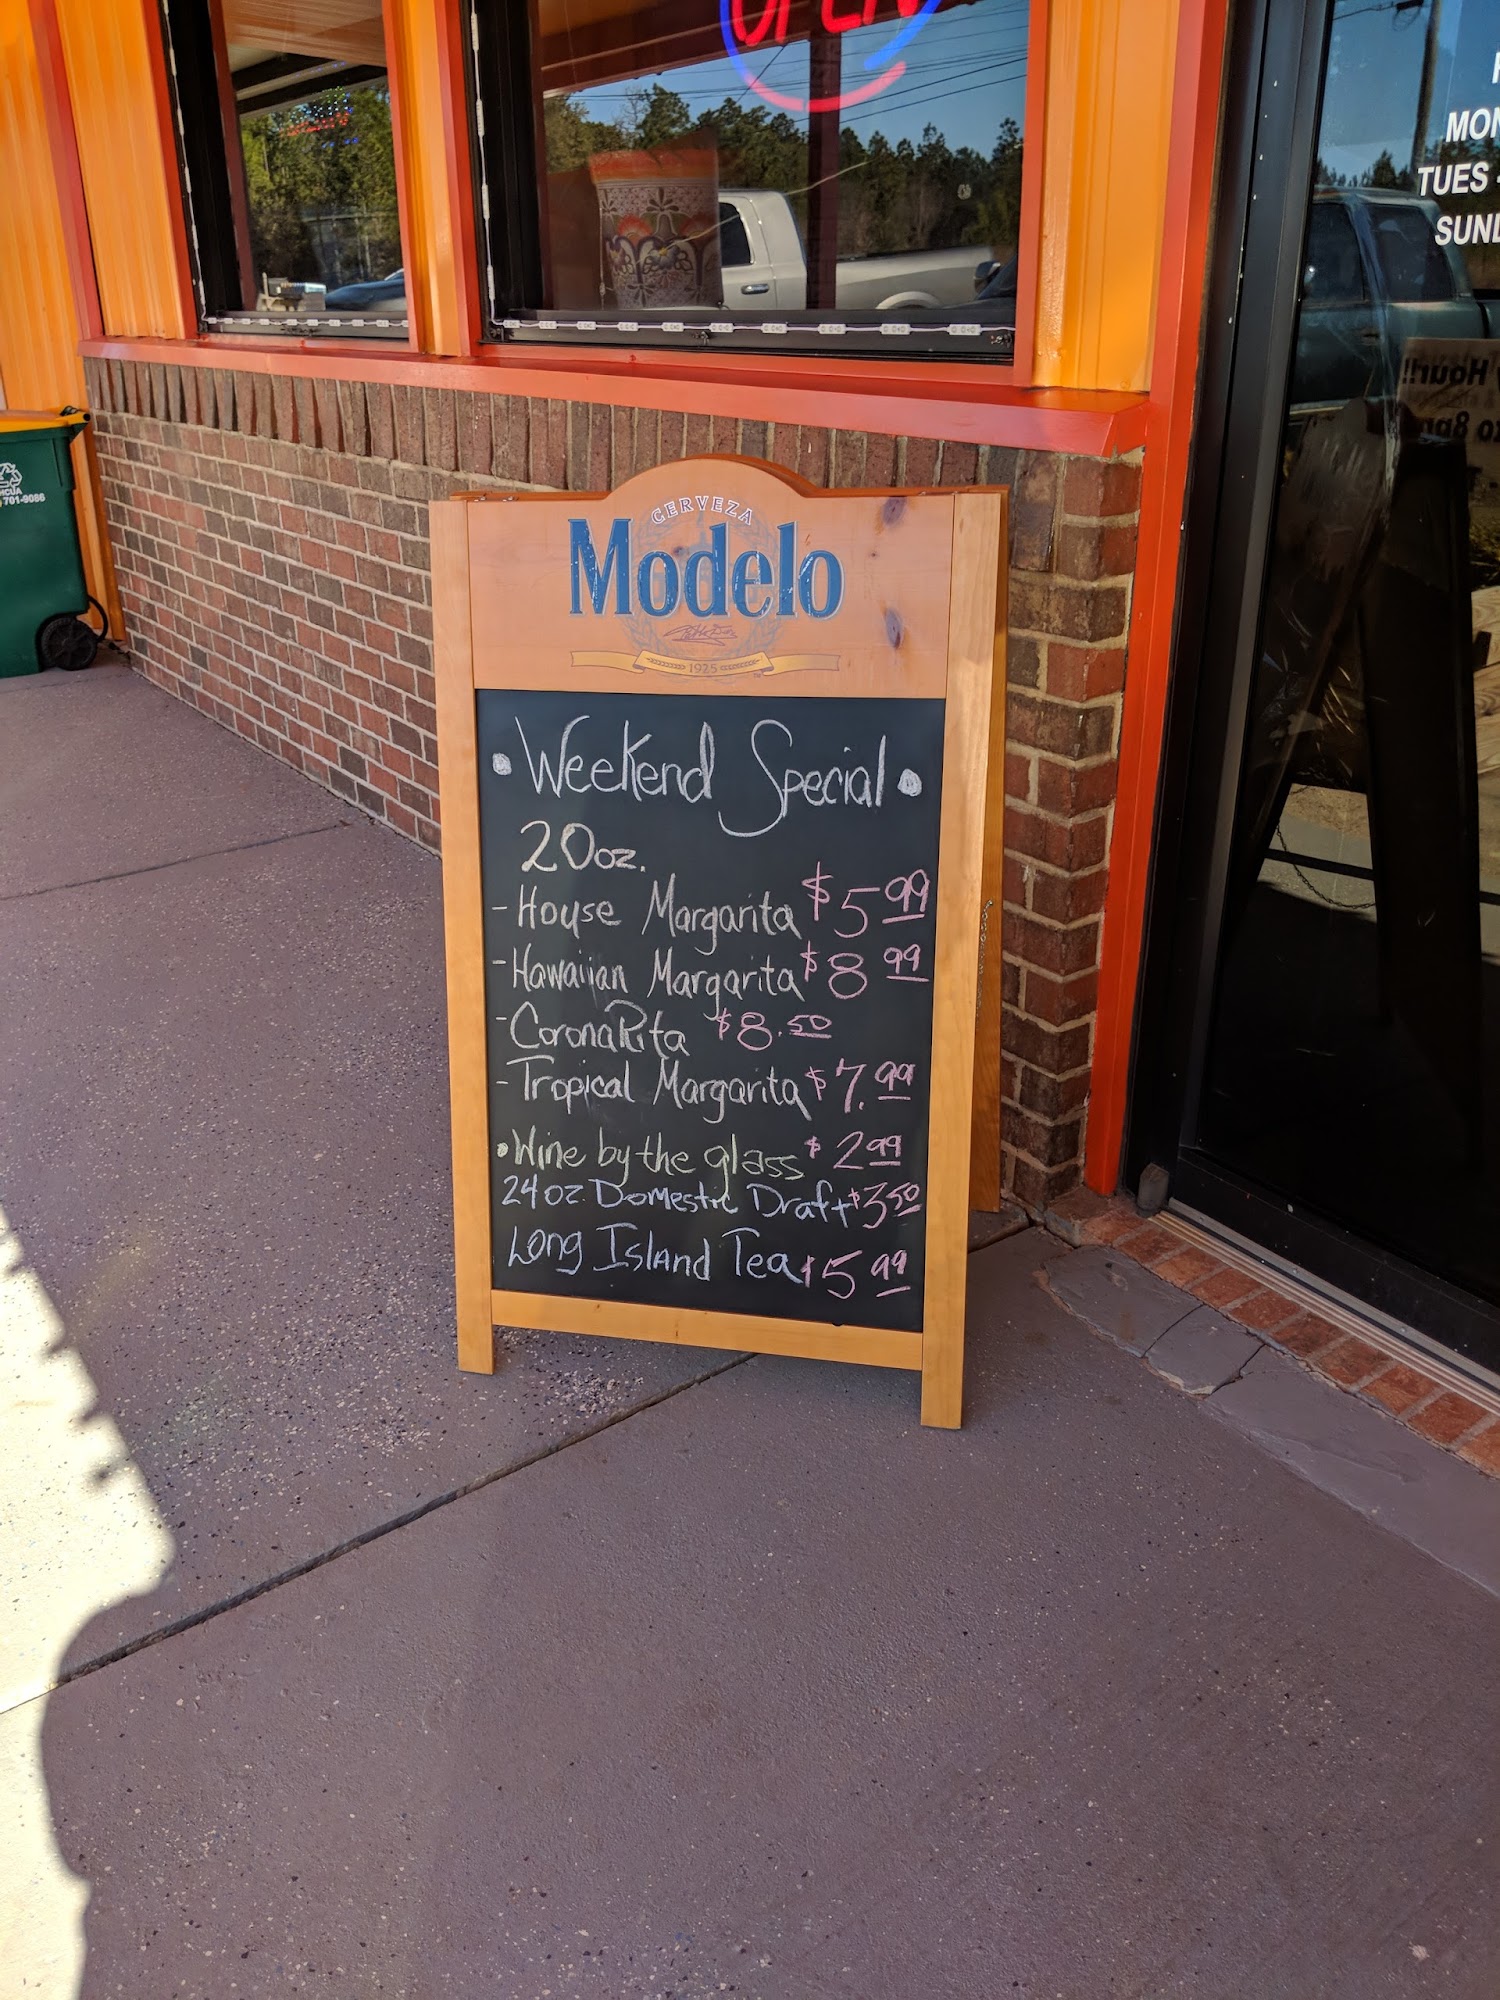 OPEN
MON
TUES -
SUND
Hour!!
to 8pm
HCUA
701-9086
CERVEZA
Modelo
1925
• Weekend Special •
20oz.
- House Margarita $5.99
- Hawaiian Margarita $8.99
- CoronaRita $8.50
- Tropical Margarita $7.99
• Wine by the glass $2.99
24oz Domestic Draft $3.50
Long Island Tea $5.99